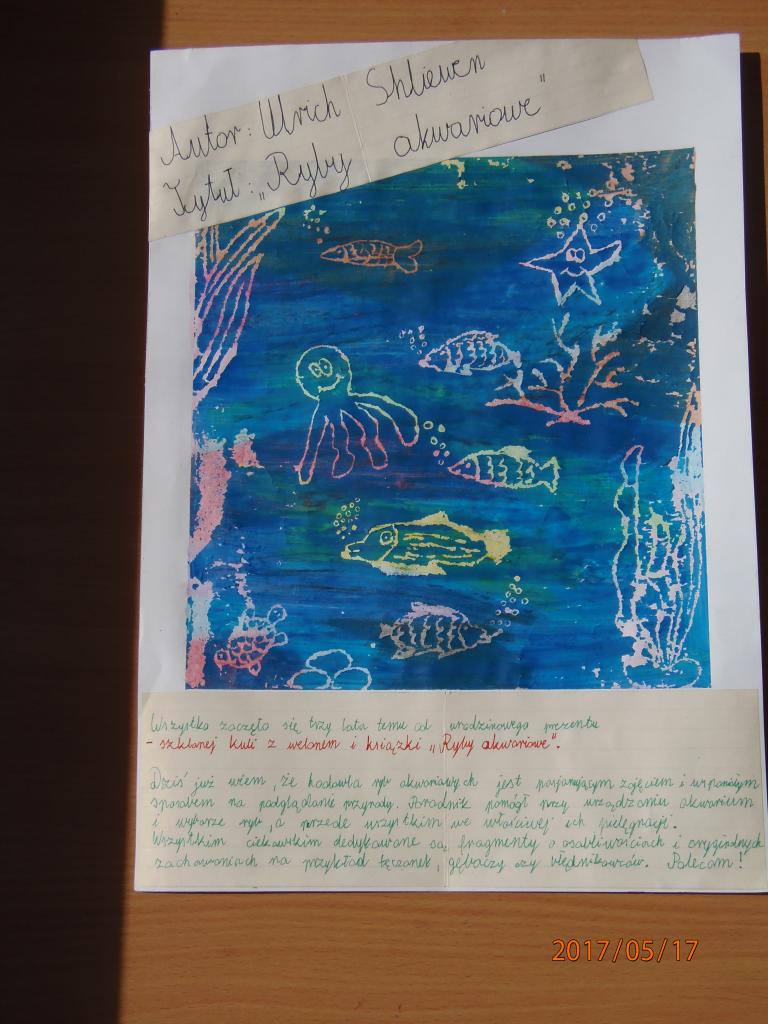 Autor: Ulrich Shliewen
Tytuł: „Ryby akwariowe"
Wszystko zaczęło się trzy lata temu od urodzinowego prezentu
- szklanej kuli z welonem i książki „Ryby akwariowe".
Dziś już wiem, że hodowla ryb akwariowych jest pasjonującym zajęciem i wspaniałym
sposobem na podglądanie przyrody. Poradnik pomógł przy urządzaniu akwarium
i wyborze ryb, a przede wszystkim we właściwej ich pielęgnacji.
Wszystkim ciekawskim dedykowane są fragmenty o osobliwościach i oryginalnych
zachowaniach na przykład tęczanek, gębaczy czy błędnikowców. Polecam!
2017/05/17